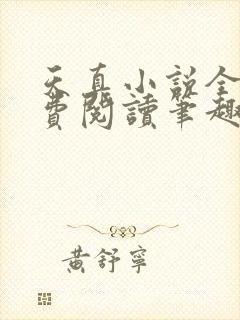 天真小說全
費閱讀筆趣
黃舒寧